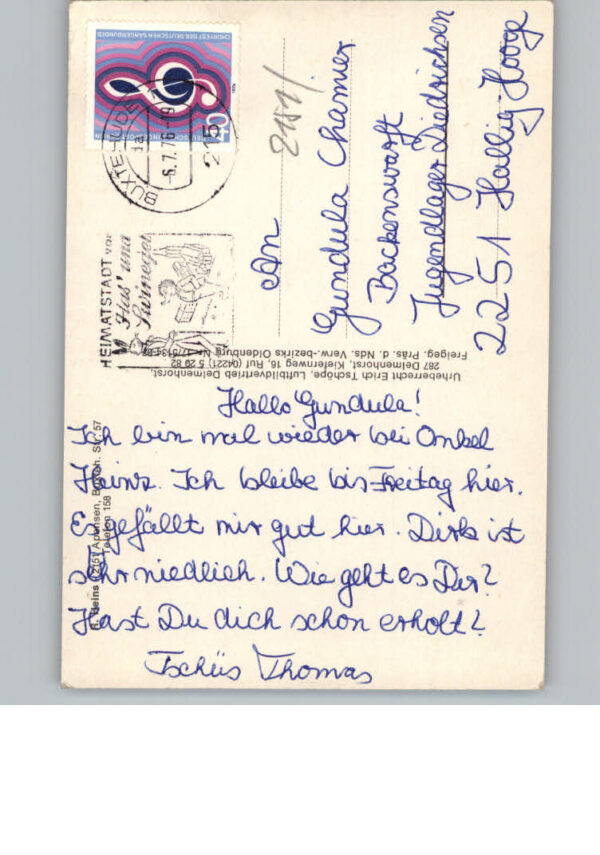 Hallo Gundula!
Ich bin mal wieder bei Onkel
Heinz. Ich bleibe bis Freitag hier.
Es gefällt mir gut hier. Dirk ist
sehr niedlich. Wie geht es Dir?
Hast Du dich schon erholt?
Tschüs Thomas
An
Gundula Chamier
Backenswarft
Jugendlager Diedrichsen
2251 Hallig-Hooge
2151/
CHORFEST DES DEUTSCHEN SÄNGERBUNDES
40
BUXTEHUDE
da
-6.7.76-19
2150
HEIMATSTADT von
Has' und
Swinegel
Urheberrecht Erich Tschöpe, Luftbildvertrieb Delmenhorst,
287 Delmenhorst, Kiefernweg 16, Ruf (04221) 5 20 82
Freigeg. Präs. d. Nds. Verw.-bezirks Oldenburg Nr.
R. Heins 2151 Apensen, Str. 57
Telefon 158